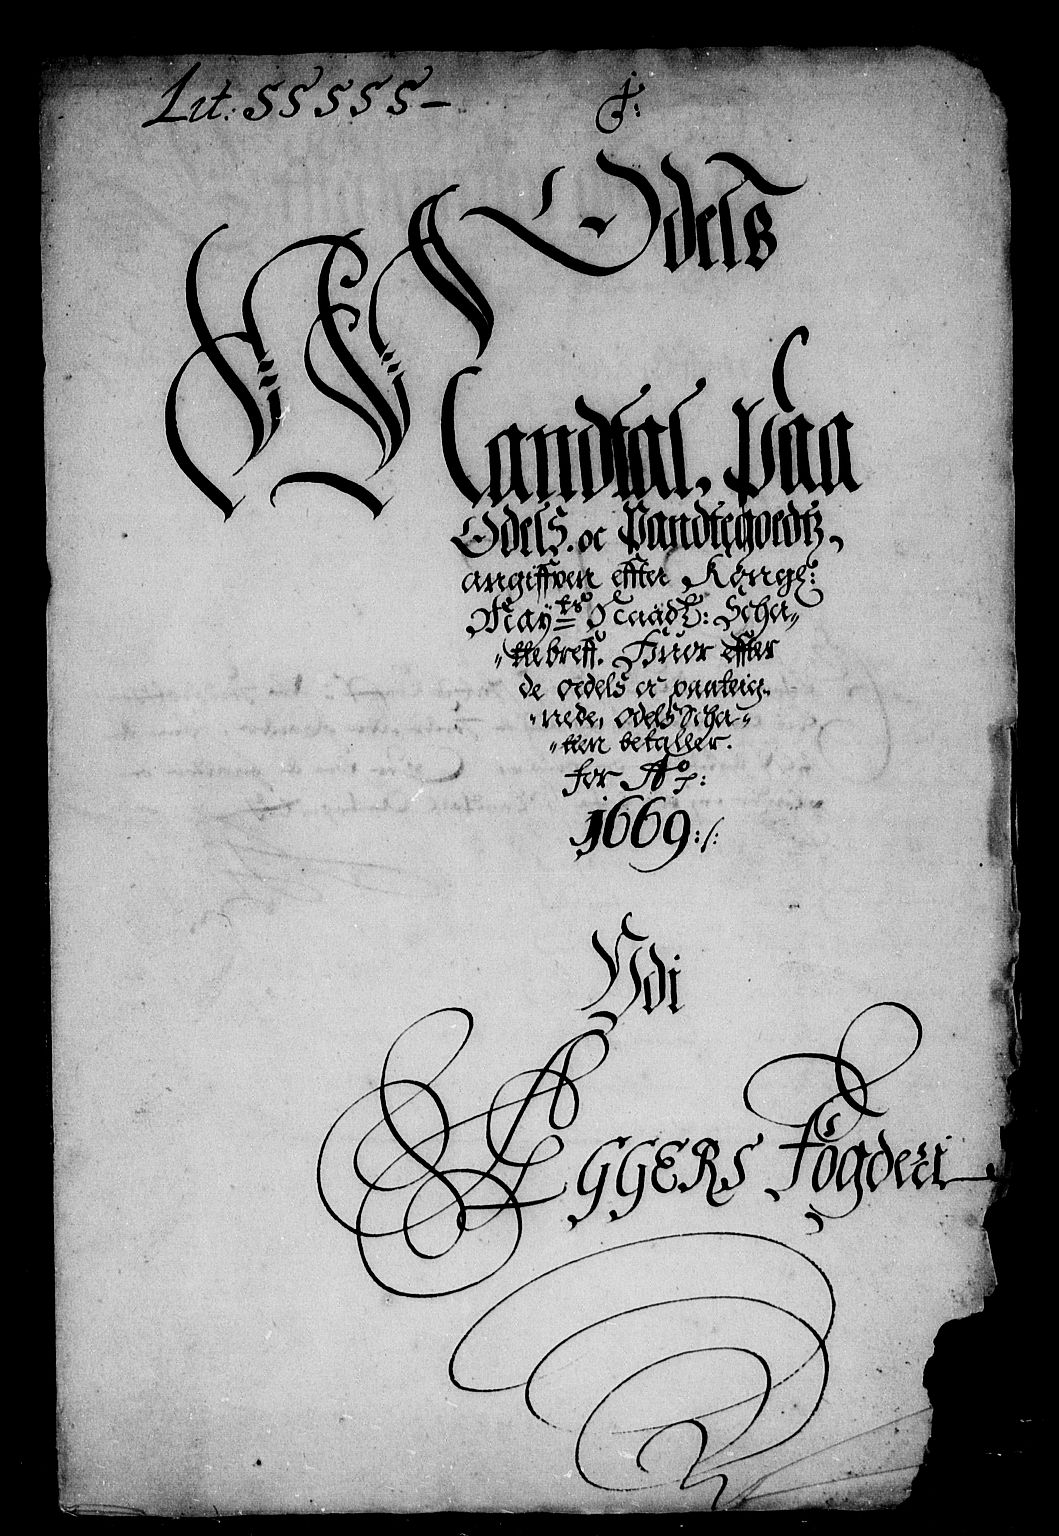 Lit. SSSSS –
J:
Odels
Mandtal, Paa
Odels. oc Pandtegoedtz,
angiffven effter Konge:
May:ts Naadz: Scha„
„ttebreff. Huor effter
de odels oc panteig„
„nede, odels Scha„
„tten betaller.
for Ao:
1669:/:
Udi
EGGERS Fögderi